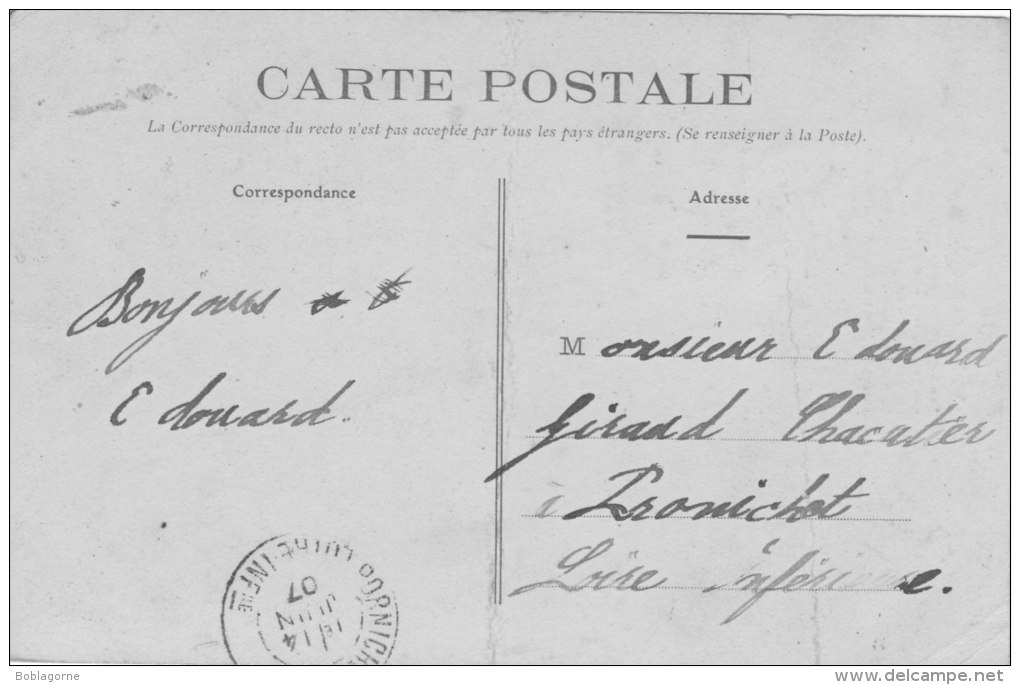 CARTE POSTALE
La Correspondance du recto n'est pas acceptée par tous les pays étrangers. (Se renseigner à la Poste).
Correspondance
Adresse
Bonjours
Edouard.
Monsieur Edouard
Giraud Chacutier
à Pronichet
Loire Inférieure.
LOIRE-INFRE
14
JUIN
07
Boblagorne
delcampe.net